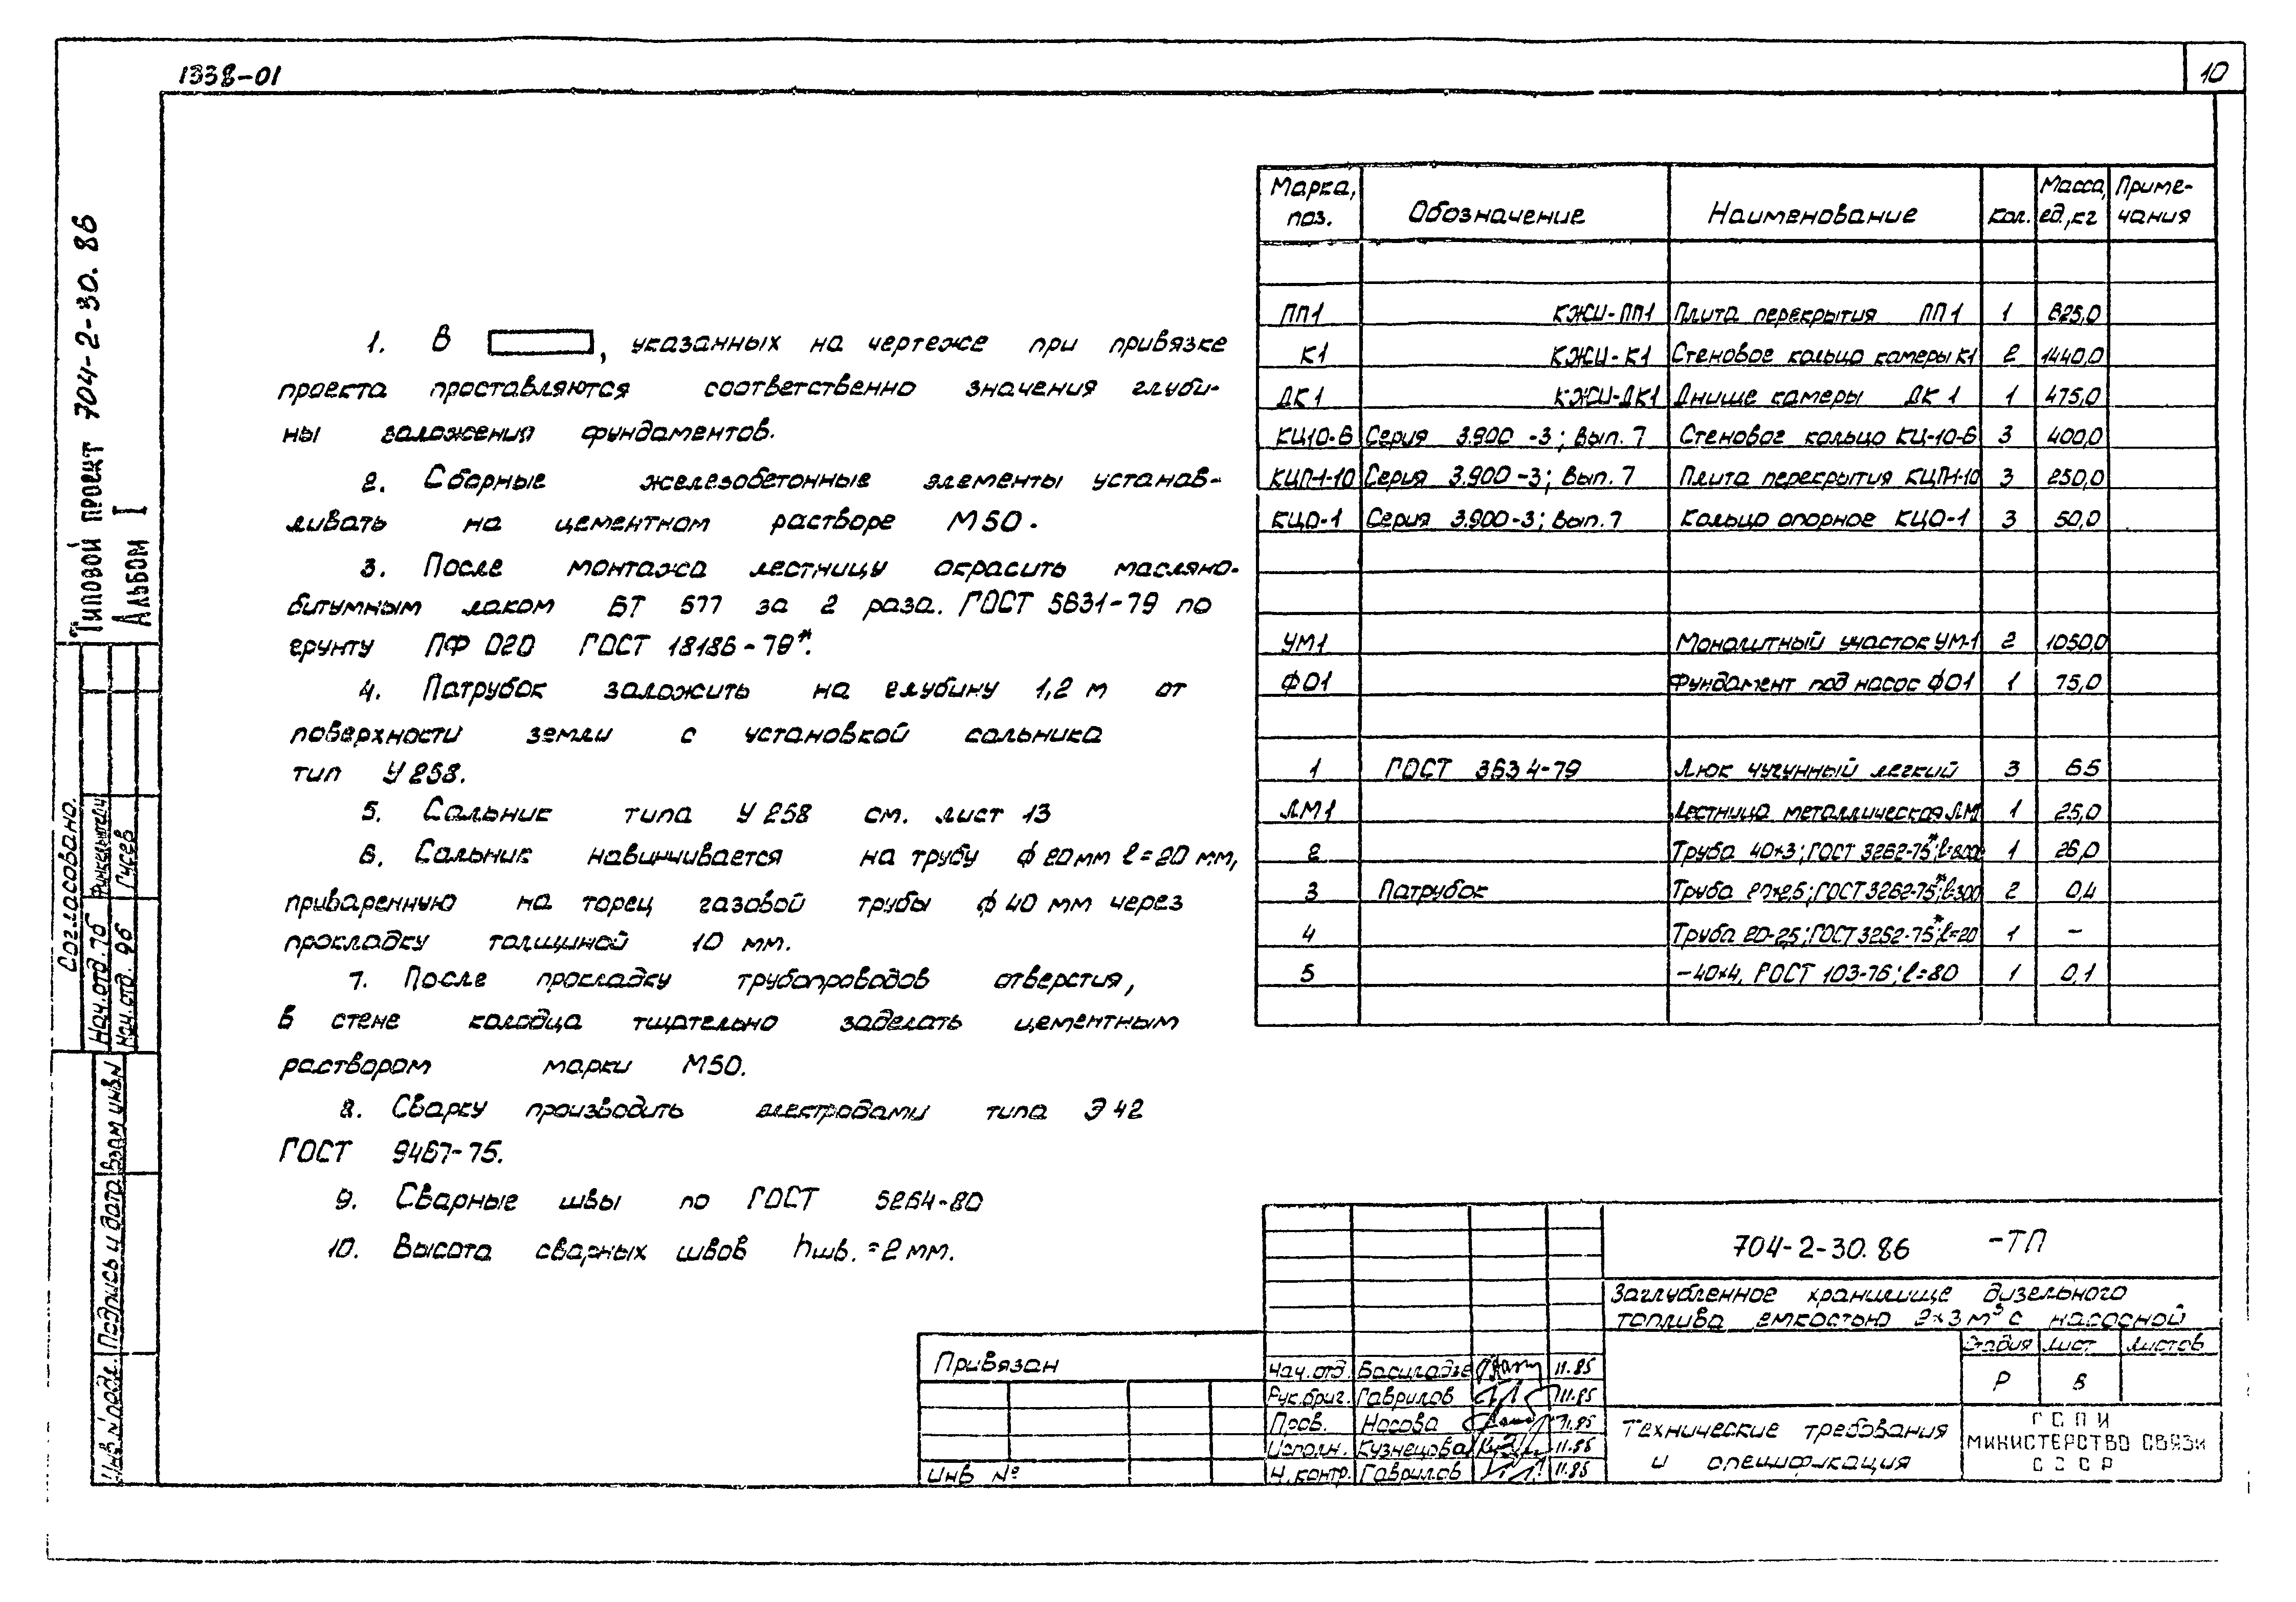 1338-01
10
Типовой проект 704-2-30.86
Альбом I
Согласовано:
Нач. отд. 7б
Нач. отд. 9б Гусев
Инв. N подл. Подпись и дата Взам инв. N
1. В , указанных на чертеже при привязке
проекта проставляются соответственно значения глуби-
ны заложения фундаментов.
2. Сборные железобетонные элементы устанав-
ливать на цементном растворе М50.
3. После монтажа лестницу окрасить масляно-
битумным лаком БТ 577 за 2 раза. ГОСТ 5631-79 по
грунту ПФ 020 ГОСТ 18186-79*.
4. Патрубок заложить на глубину 1,2 м от
поверхности земли с установкой сальника
тип У 258.
5. Сальник типа У 258 см. лист 13
6. Сальник навинчивается на трубу ф 20мм ℓ=20 мм,
приваренную на торец газовой трубы ф 40 мм через
прокладку толщиной 10 мм.
7. После прокладку трубопроводов отверстия,
в стене колодца тщательно заделать цементным
раствором марки М50.
8. Сварку производить электродами типа Э 42
ГОСТ 9467-75.
9. Сварные швы по ГОСТ 5264-80
10. Высота сварных швов hшв.=2 мм.
Марка, поз. Обозначение Наименование Кол. Масса, ед., кг Приме-чания
ПП1 КЖИ-ПП1 Плита перекрытия ПП1 1 825,0
К1 КЖИ-К1 Стеновое кольцо камеры К1 2 1440,0
ДК1 КЖИ-ДК1 Днище камеры ДК 1 1 475,0
КЦ10-6 Серия 3.900-3; Вып. 7 Стеновое кольцо КЦ-10-6 3 400,0
КЦП1-10 Серия 3.900-3; Вып. 7 Плита перекрытия КЦП1-10 3 250,0
КЦО-1 Серия 3.900-3; Вып. 7 Кольцо опорное КЦО-1 3 50,0
УМ1 Монолитный участок УМ-1 2 1050,0
ФО1 Фундамент под насос ФО1 1 75,0
1 ГОСТ 3634-79 Люк чугунный легкий 3 65
ЛМ1 Лестница металлическая ЛМ1 1 25,0
2 Труба 40×3; ГОСТ 3262-75*; 1 26,0
3 Патрубок Труба 20×2,5; ГОСТ 3262-75*; ℓ=300 2 0,4
4 Труба 20-25; ГОСТ 3262-75*; ℓ=20 1 –
5 –40×4, ГОСТ 103-76; ℓ=80 1 0,1
704-2-30.86 -ТП
Заглубленное хранилище дизельного
топлива емкостью 2×3 м³ с насосной
Стадия Лист Листов
Р 8
Технические требования
и спецификация
ГСПИ
МИНИСТЕРСТВО СВЯЗИ
СССР
Нач. отд. Басиладзе 11.85
Рук. бриг. Гаврилов 11.85
Пров. Носова 11.85
Исполн. Кузнецова 11.85
Н. контр. Гаврилов 11.85
Привязан
Инв №